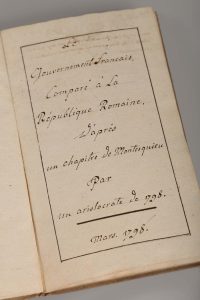 Le
Gouvernement Francais,
Comparé à La
République Romaine,
d'après
un chapitre de Montesquieu
Par
un aristocrate de 1798.
Mars. 1798.